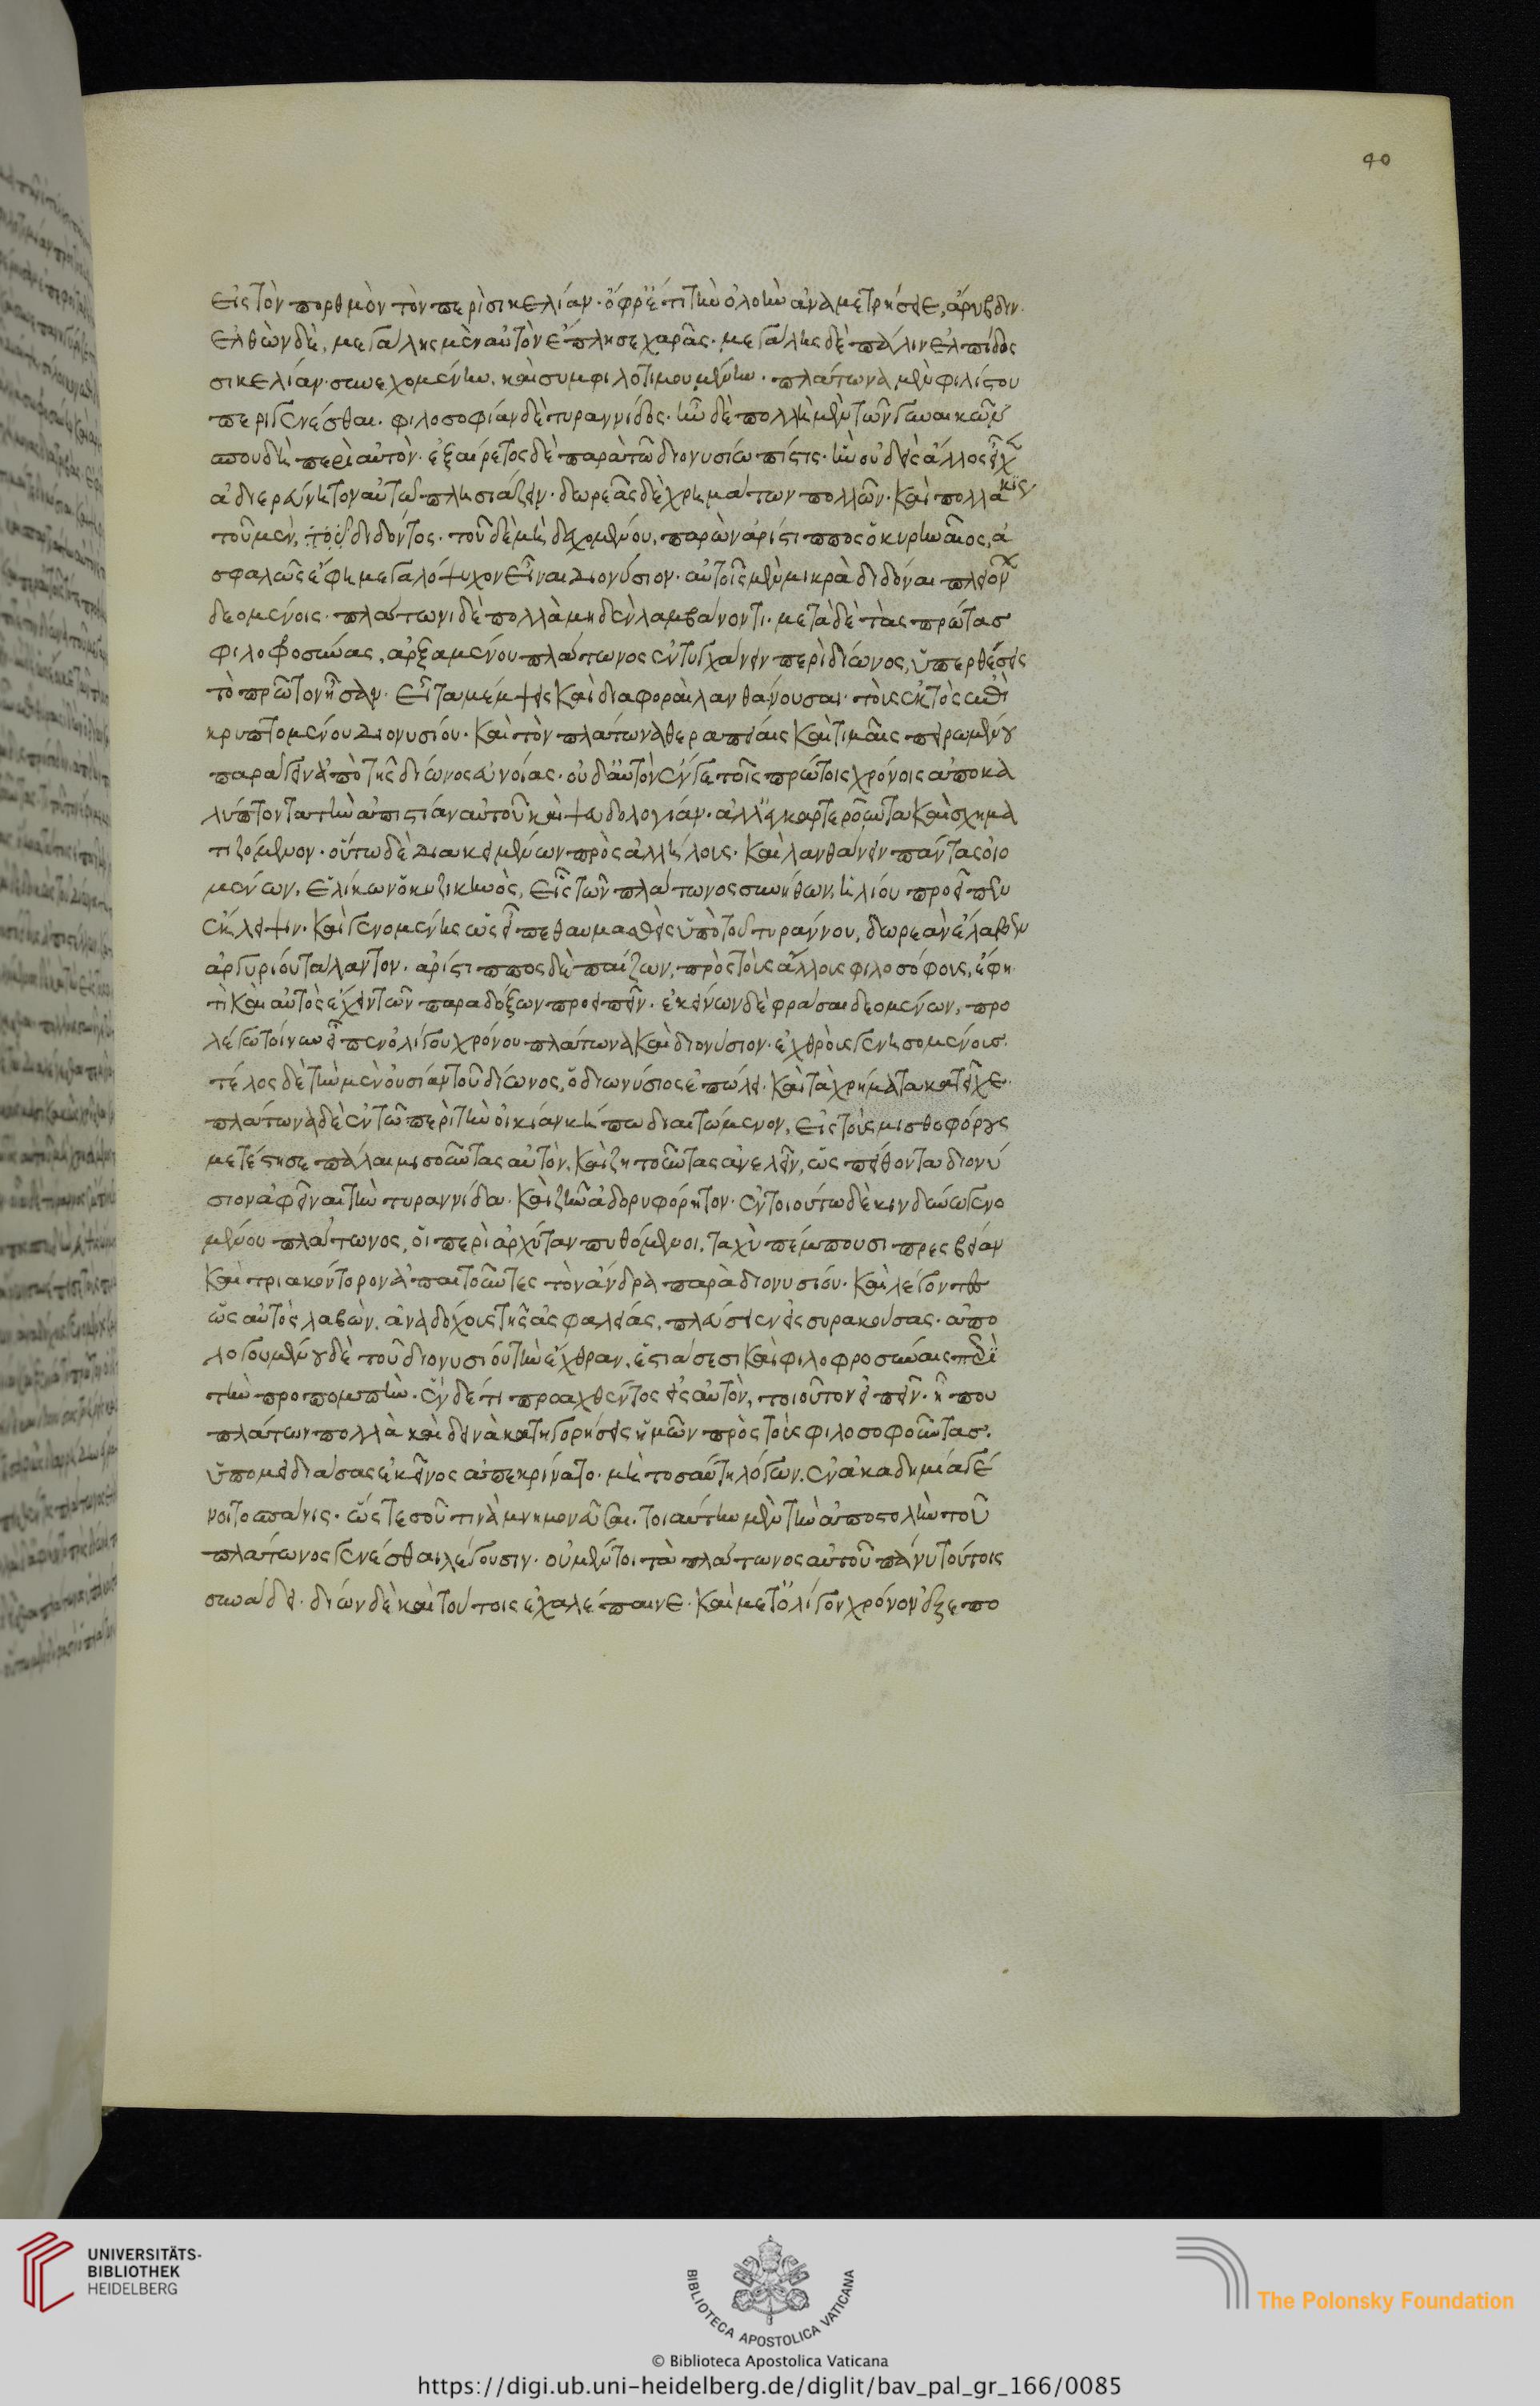 40
εἰς τὸν πορθμὸν τὸν περὶ σικελίαν· ὄφρ' ἔτι τὴν ὀλοὴν ἀναμετρήσειε χάρυβδιν·
ἐλθὼν δὲ, μεγάλης μὲν αὐτὸν ἔπλησε χαρᾶς· μεγάλης δὲ πάλιν ἐλπίδος
σικελίαν συνεχομένην, καὶ συμφιλοτιμουμένην· πλάτωνα μὲν φιλίστου
περιγενέσθαι· φιλοσοφίαν δὲ τυραννίδος· ἦν δὲ πολλὴ μὲν τῶν γυναικῶν
σπουδὴ περὶ αὐτὸν· ἐξαίρετος δὲ παρὰ τῶ διονυσίω πίστις· ἣν οὐδεὶς ἄλλος εἶχ
ἀδιερεύνητον αὐτῶ πλησιάζειν· δωρεᾶς δὲ χρημάτων πολλῶν· καὶ πολλάκις
τοῦ μὲν, τοῦ διδόντος· τοῦ δὲ μὴ δεχομένου, παρὼν ἀρίστιππος ὁ κυρηναῖος, ἀ
σφαλῶς ἔφη μεγαλόψυχον εἶναι διονύσιον· αὐτοῖς μὲν μικρὰ διδόναι πλειόνων
δεομένοις· πλάτωνι δὲ πολλὰ μηδὲν λαμβάνοντι· μετὰ δὲ τὰς πρώτας
φιλοφροσύνας, ἀρξαμένου πλάτωνος ἐντυγχάνειν περὶ δίωνος, ὑπερθέσεις
τὸ πρῶτον ἦσαν· εἶτα μέμψεις καὶ διαφοραὶ λανθάνουσαι· τοὺς ἐκτὸς
κρυπτομένου διονυσίου· καὶ τὸν πλάτωνα θεραπείαις καὶ τιμαῖς πειρωμένου
παράγειν ἀπὸ τῆς δίωνος εὐνοίας· οὐδ' αὐτὸν ἔν γε τοῖς πρώτοις χρόνοις ἀποκα
λύπτοντα τὴν ἀπιστίαν αὐτοῦ καὶ ψευδολογίαν· ἀλλ' ἐγκαρτεροῦντα καὶ σχημα
τιζόμενον· οὕτω δὲ διακειμένων πρὸς ἀλλήλους· καὶ λανθάνειν πάντας οἰο
μένων, ἑλίκων ὁ κυζικηνὸς, εἷς τῶν πλάτωνος συνήθων, ἡλίου προεῖπεν
ἔκλειψιν· καὶ γενομένης ὡς εἶπε θαυμασθεὶς ὑπὸ τοῦ τυράννου, δωρεὰν ἔλαβεν
ἀργυρίου τάλαντον· ἀρίστιππος δὲ παίζων, πρὸς τοὺς ἄλλους φιλοσόφους, ἔφη
τὶ καὶ αὐτὸς ἔχειν τῶν παραδόξων προειπεῖν· ἐκείνων δὲ φράσαι δεομένων, προ
λέγω τοίνυν εἶπεν ὀλίγου χρόνου πλάτωνα καὶ διονύσιον· ἐχθροὺς γενησομένους·
τέλος δὲ τὴν μὲν οὐσίαν τοῦ δίωνος, ὁ διωνύσιος ἐπώλει· καὶ τὰ χρήματα κατεῖχε·
πλάτωνα δὲ ἐν τῶ περὶ τὴν οἰκίαν κήπω διαιτώμενον, εἰς τοὺς μισθοφόρους
μετέστησε πάλαι μισοῦντας αὐτὸν, καὶ ζητοῦντας ἀνελεῖν, ὡς πείθοντα διονύ
σιον ἀφεῖναι τὴν τυραννίδα· καὶ ζῆν ἀδορυφόρητον· ἐν τοιούτω δὲ κινδύνω γενο
μένου πλάτωνος, οἱ περὶ ἀρχύταν πυθόμενοι, ταχὺ πέμπουσι πρεσβείαν
καὶ τριακόντορον ἀπαιτοῦντες τὸν ἄνδρα παρὰ διονυσίου· καὶ λέγοντες
ὡς αὐτοὺς λαβὼν, ἀναδόχους τῆς ἀσφαλείας, πλεύσειεν εἰς συρακούσας· ἀπο
λογουμένου δὲ τοῦ διονυσίου τὴν ἔχθραν, ἑστιάσεσι καὶ φιλοφροσύναις περὶ
τὴν προπομπὴν· ἓν δέ τι προαχθέντος εἰς αὐτὸν, τοιοῦτον εἰπεῖν· ἦ που
πλάτων πολλὰ καὶ δεινὰ κατηγορήσεις ἡμῶν πρὸς τοὺς φιλοσοφοῦντας·
ὑπομειδιάσας ἐκεῖνος ἀπεκρίνατο· μὴ τοσαύτη λόγων, ἐν ἀκαδημία γέ
νοιτο σπάνις· ὥστε σοῦ τινὰ μνημονεῦσαι· τοιαύτην μὲν τὴν ἀποστολὴν τοῦ
πλάτωνος γενέσθαι λέγουσιν· οὐ μέντοι τὰ πλάτωνος αὐτοῦ πάνυ τούτοις
συνάδει· δίων δὲ καὶ τούτοις ἐχαλέπαινε· καὶ μετ' ὀλίγον χρόνον ἐξεπο
UNIVERSITÄTS-
BIBLIOTHEK
HEIDELBERG
BIBLIOTECA APOSTOLICA VATICANA
The Polonsky Foundation
© Biblioteca Apostolica Vaticana
https://digi.ub.uni-heidelberg.de/diglit/bav_pal_gr_166/0085